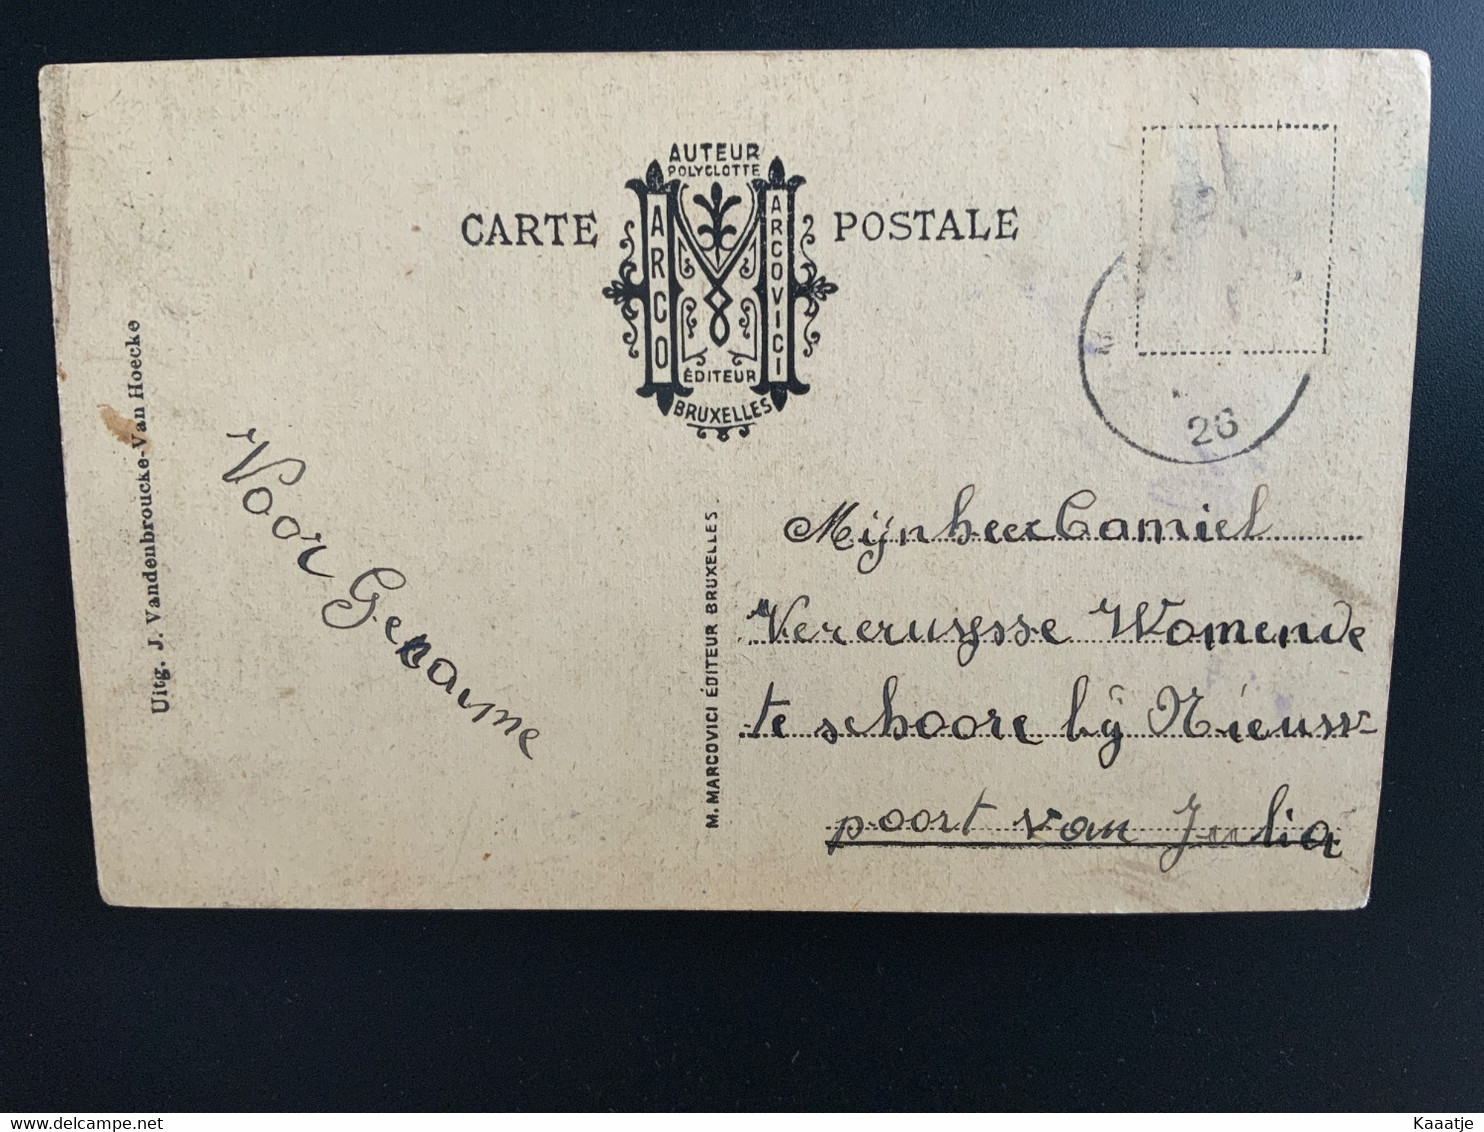 AUTEUR
POLYGLOTTE
CARTE POSTALE
MARCO
MARCOVICI
ÉDITEUR
BRUXELLES
26
Uitg. J. Vandenbroucke-Van Hoecke
Voor
M. MARCOVICI ÉDITEUR BRUXELLES.
Mijnheer Camiel
Vercruysse Wonende
te schoore bij Nieuw-
poort van Julia
Kaaatje